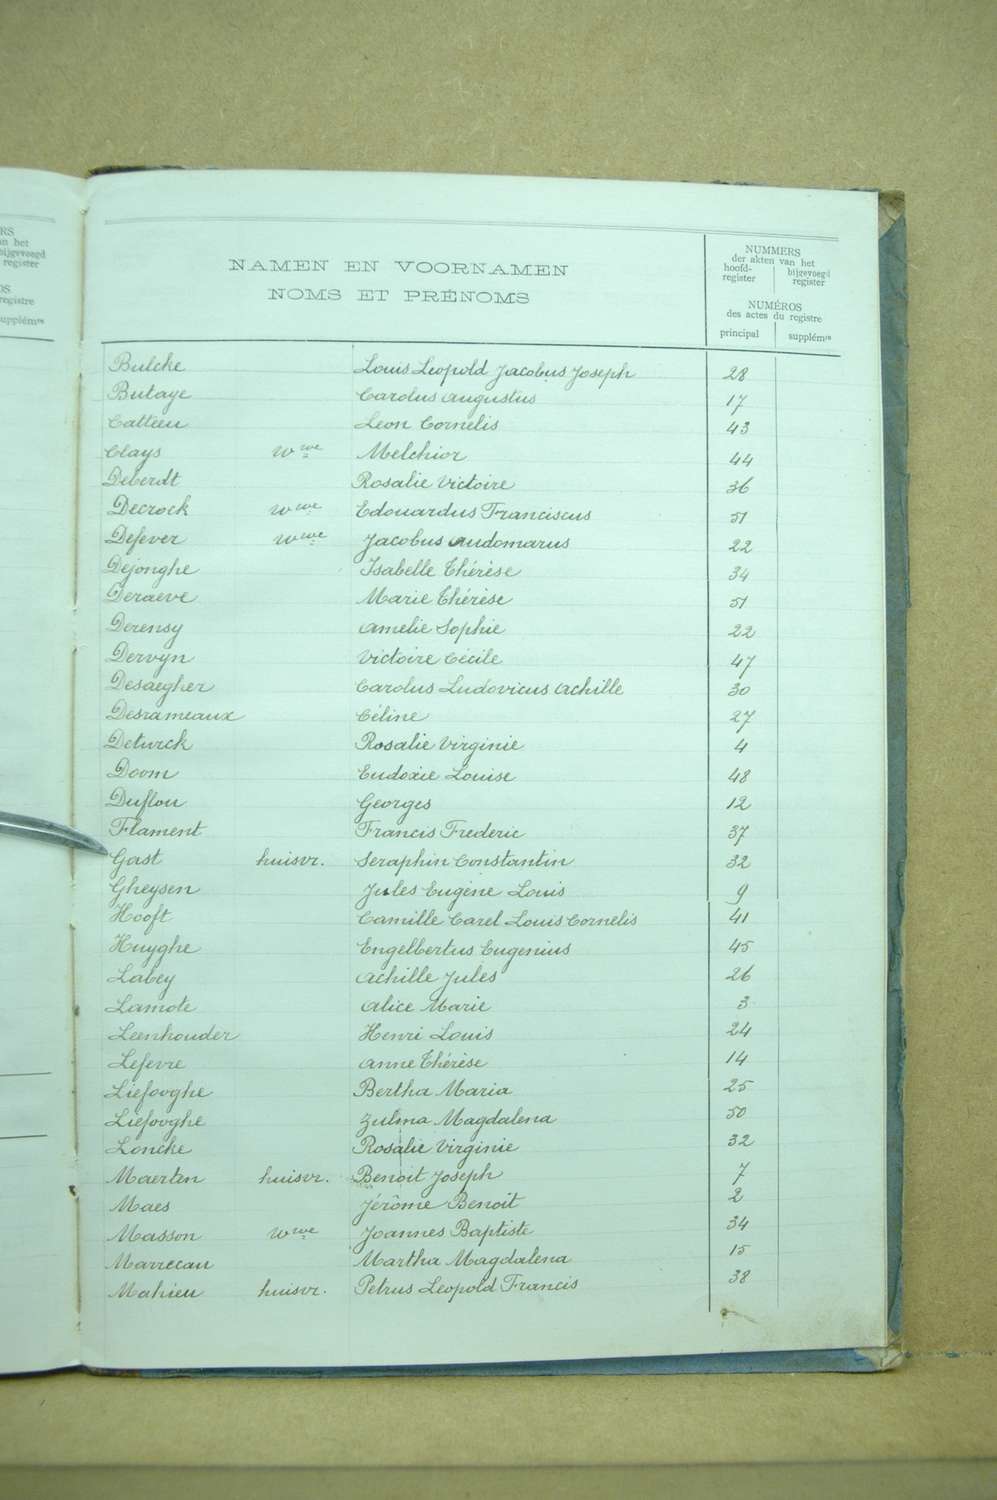 RS
an het
bijgevoegd
register
OS
registre
supplémre
NAMEN EN VOORNAMEN
NOMS ET PRÉNOMS
NUMMERS
der akten van het
hoofd-register
bijgevoegd register
NUMÉROS
des actes du registre
principal
supplémre
Bulcke Louis Leopold Jacobus Joseph 28
Butaye Carolus Augustus 17
Catteeu Leon Cornelis 43
Clays wwe Melchior 44
Deberdt Rosalie Victoire 36
Decrock wwe Edouardus Franciscus 51
Defever wwe Jacobus Audomarus 22
Dejonghe Isabelle Thérèse 34
Deraeve Marie Thérèse 51
Derensy Amelie Sophie 22
Dervyn Victoire Cécile 47
Desaegher Carolus Ludovicus Achille 30
Desrameaux Céline 27
Deturck Rosalie Virginie 4
Doom Eudoxie Louise 48
Duflou Georges 12
Flament Francis Frederic 37
Gast huisvr. Seraphin Constantin 32
Gheysen Jules Eugène Louis 9
Hooft Camille Carel Louis Cornelis 41
Huyghe Engelbertus Eugenius 45
Labey Achille Jules 26
Lamote Alice Marie 3
Leenhouder Henri Louis 24
Lefevre Anne Thérèse 14
Liefooghe Bertha Maria 25
Liefooghe Zulma Magdalena 50
Loncke Rosalie Virginie 32
Maerten huisvr. Benoit Joseph 7
Maes Jérôme Benoit 2
Masson wwe Joannes Baptiste 34
Marrecau Martha Magdalena 15
Mahieu huisvr. Petrus Leopold Francis 38